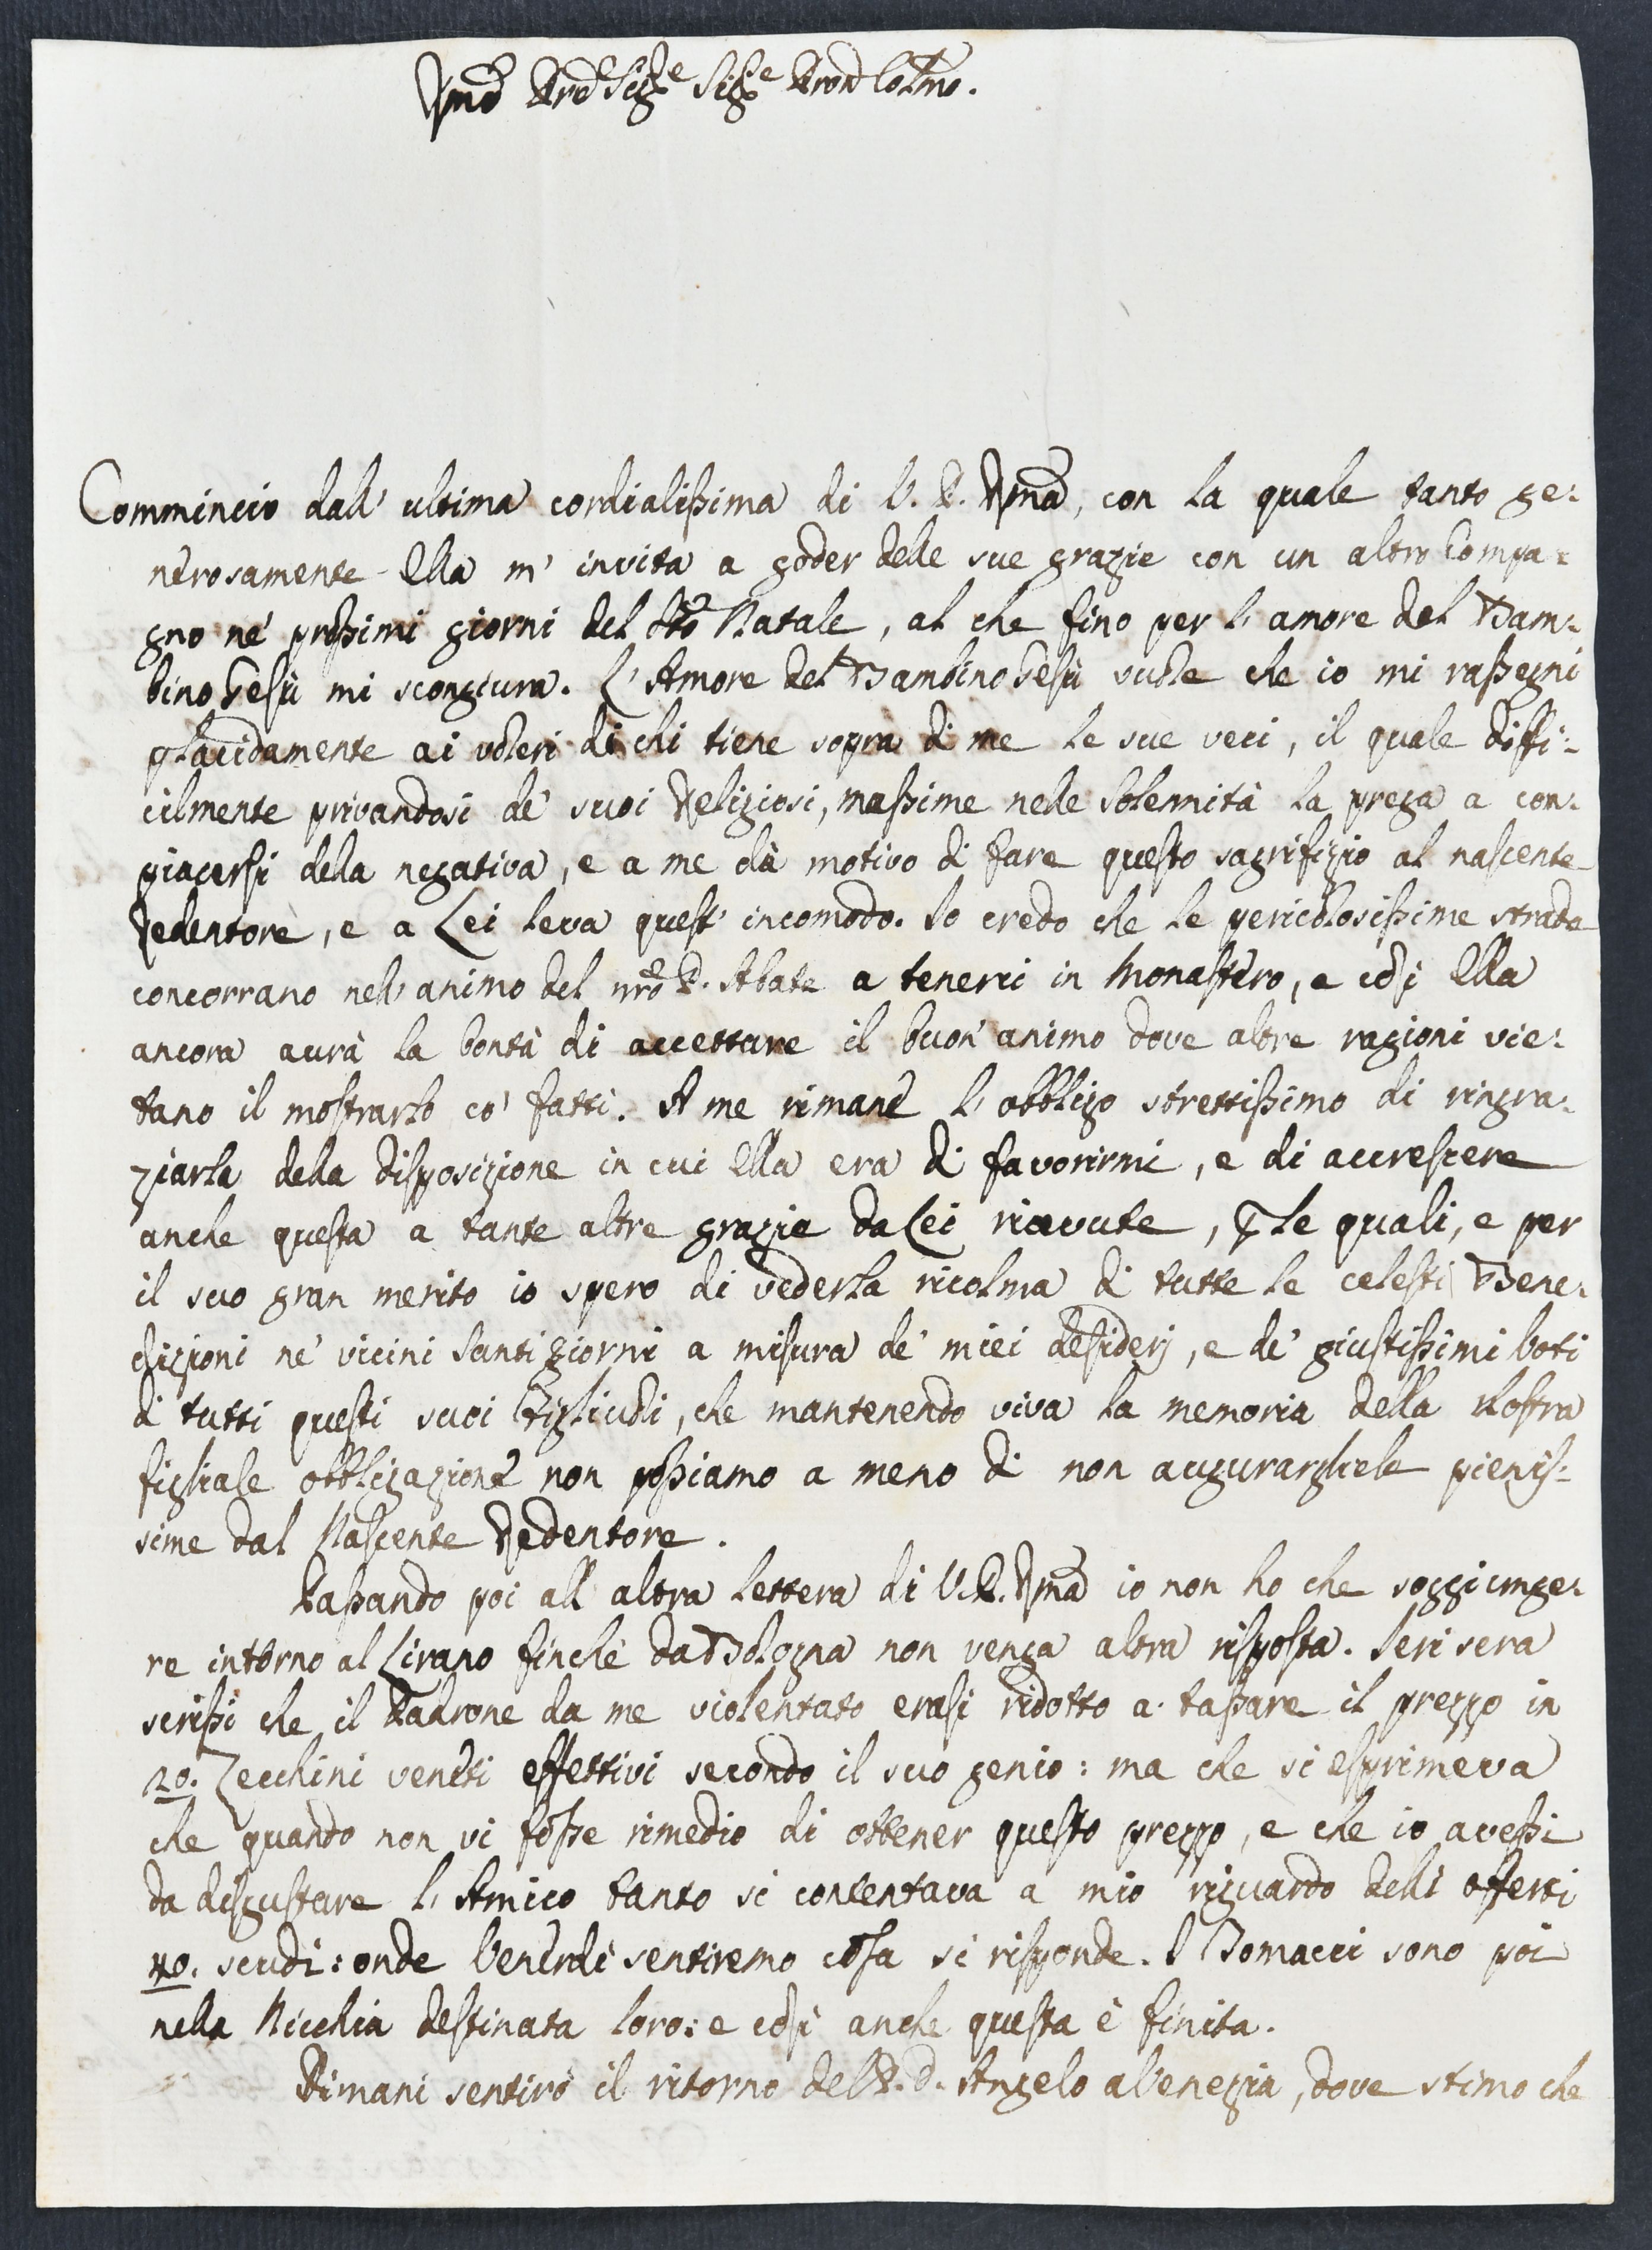 Rmo Pre Sig.e Sig.e Pron Colmo.
Commincio dall' ultima cordialissima di V. P. Rma, con la quale tanto ge:
nerosamente Ella m' invita a goder delle sue grazie con un altro Compa:
gno ne' prossimi giorni del Sto Natale, al che fino per l' amore del Bam:
bino Gesù mi scongiura. L' Amore del Bambino Gesù vuole che io mi rassegni
placidamente ai voleri di chi tiene sopra di me le sue veci, il quale diffi:
cilmente privandosi de' suoi Religiosi, massime nelle Solennità la prega a con:
piacersi della negativa, e a me dà motivo di fare questo sagrifizio al nascente
Redentore, e a Lei leva quest' incomodo. Io credo che le pericolosissime strade
concorrano nell' animo del nro P. Abate a tenerci in Monastero, e così Ella
ancora aurà la bontà di accettare il buon' animo dove altre ragioni vie:
tano il mostrarlo co' fatti. A me rimane l' obbligo strettissimo di ringra:
ziarla della disposizione in cui Ella era di favorirmi, e di accrescere
anche questa a tante altre grazie da Lei ricevute, p le quali, e per
il suo gran merito io spero di vederla ricolma di tutte le celesti Bene:
dizioni ne' vicini Santi giorni a misura de' miei desiderj, e de' giustissimi voti
di tutti questi suoi Figliuoli, che mantenendo viva la memoria della Nostra
figliale obbligazione non possiamo a meno di non augurargliele pienis:
sime dal Nascente Redentore.
Passando poi all' altra lettera di V. P. Rma io non ho che soggiunge:
re intorno al Lirano finchè da Bologna non venga altra risposta. Ieri sera
scrissi che il Padrone da me violentato erasi ridotto a tassare il prezzo in
20. Zecchini veneti effettivi secondo il suo genio: ma che si esprimeva
che quando non vi fosse rimedio di ottener questo prezzo, e che io avessi
da disgustare l' Amico tanto si contentava a mio riguardo delli offerti
40. scudi: onde Venerdì sentiremo cosa si risponde. I Bomacci sono poi
nella Nicchia destinata loro: e così anche questa è finita.
Dimani sentirò il ritorno del P. D. Angelo a Venezia, dove stimo che